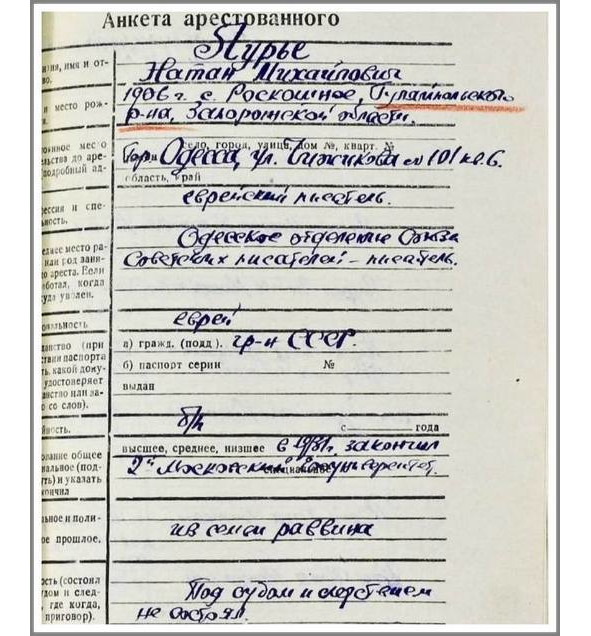 Анкета арестованного
Лурье
Натан Михайлович
1906 г. с. Роскошное, Гуляйпольского
р-на, Запорожской области.
село, город, улица, дом №, кварт. №
гор. Одесса, ул. Чижикова № 101 кв. 6.
область, край
еврейский писатель.
Одесское отделение Союза
Советских писателей – писатель.
еврей
а) гражд. (подд.). гр-н СССР.
б) паспорт серии №
выдан
б/п
с года
высшее, среднее, низшее в 1931 г. закончил
2й Московский Госуниверситет.
из семьи раввина
Под судом и следствием
не состоял.
ия, имя и от-
во.
и место рож-
я.
оянное место
льства до аре-
подробный ад-
ессия и спе-
ность.
днее место ра-
или род заня-
о ареста. Если
ботал, когда
уда уволен.
ональность
анство (при
твии паспорта
ть, какой доку-
удостоверяет
анство или за-
о со слов).
йность.
ование общее
иальное (под-
ть) и указать
кончил
ьное и поли-
ое прошлое.
ость (состоял
дом и след-
, где когда,
приговор).